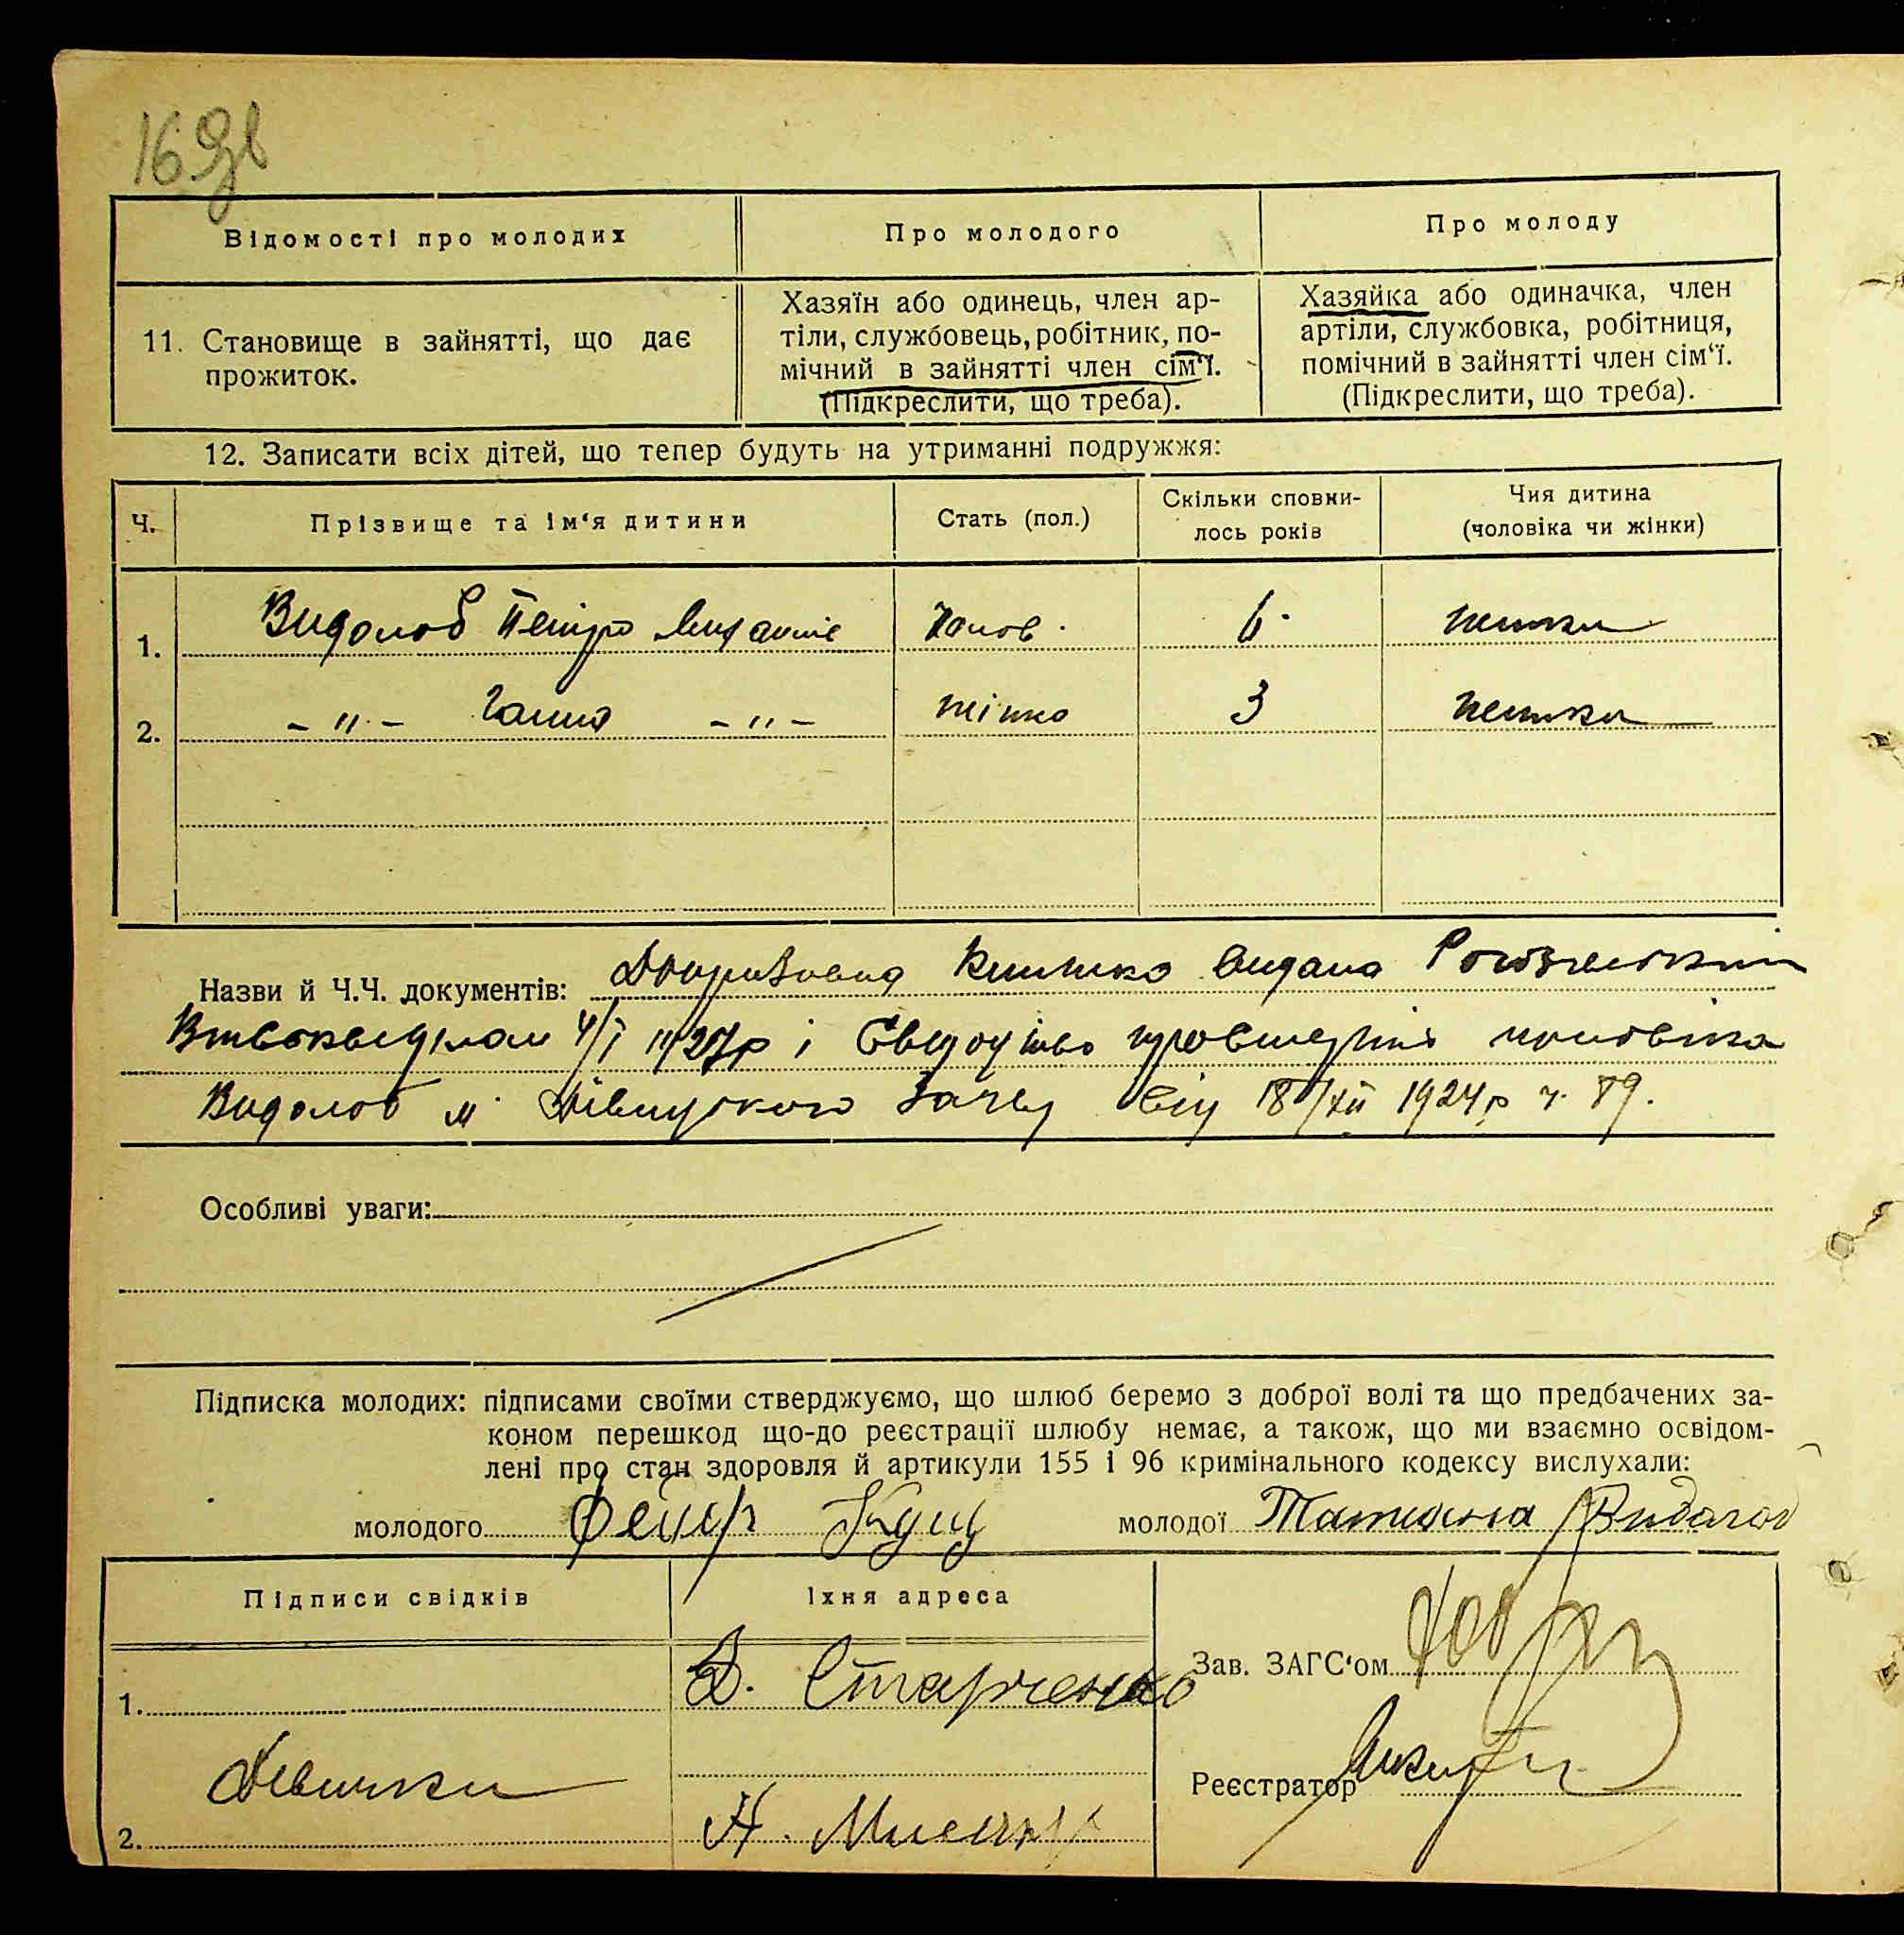 16 зв
Відомості про молодих
Про молодого
Про молоду
11. Становище в зайнятті, що дає
прожиток.
Хазяїн або одинець, член ар-
тіли, службовець, робітник, по-
мічний в зайнятті член сім‘ї.
(Підкреслити, що треба).
Хазяйка або одиначка, член
артіли, службовка, робітниця,
помічний в зайнятті член сім‘ї.
(Підкреслити, що треба).
12. Записати всіх дітей, що тепер будуть на утриманні подружжя:
Ч.
Прізвище та ім‘я дитини
Стать (пол.)
Скільки сповни-
лось років
Чия дитина
(чоловіка чи жінки)
1. Видолоб Петро чолов. 6. жинки
2. -"- Ганна -"- жінко 3 жинки
Назви й Ч.Ч. документів: Допризовна Книжка видана
4/I 1927р і Свидоцтво чоловіка
Видолоб від 18/XII 1924р ч. 89.
Особливі уваги:
Підписка молодих: підписами своїми стверджуємо, що шлюб беремо з доброї волі та що предбачених за-
коном перешкод що-до реєстрації шлюбу немає, а також, що ми взаємно освідом-
лені про стан здоровля й артикули 155 і 96 кримінального кодексу вислухали:
молодого Федір Куц молодої Татияна Видолоб
Підписи свідків
Їхня адреса
1. Д. Старченко
Зав. ЗАГС‘ом
Девички
Реєстратор
2. Н.